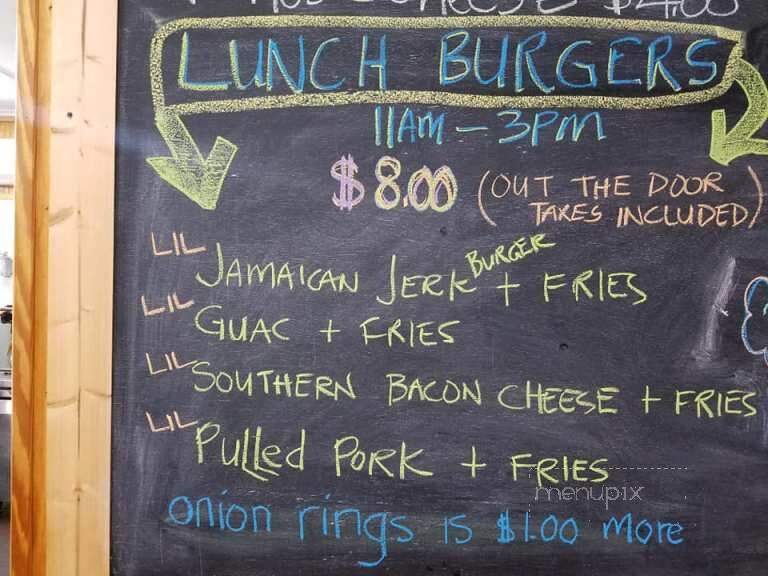 $4.00
LUNCH BURGERS
11AM - 3PM
$8.00 (OUT THE DOOR
TAXES INCLUDED)
LIL JAMAICAN JERK BURGER + FRIES
LIL GUAC + FRIES
LIL SOUTHERN BACON CHEESE + FRIES
LIL PULLed PORK + FRIES
menupix
onion rings is $1.00 more